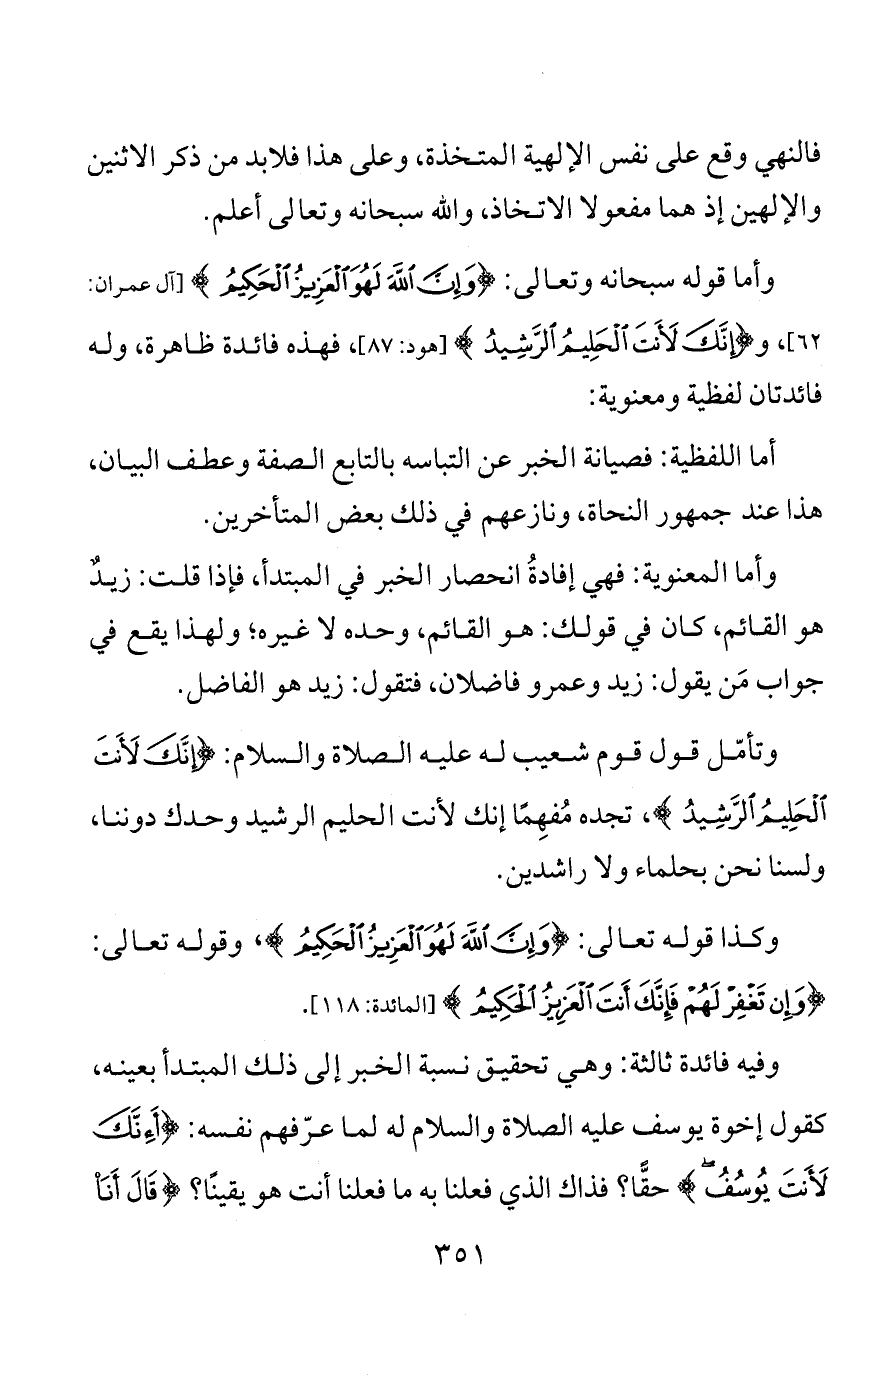 فالنهي وقع على نفس الإلهية المتخذة، وعلى هذا فلابد من ذكر الاثنين
والإلهين إذ هما مفعولا الاتخاذ، والله سبحانه وتعالى أعلم.
وأما قوله سبحانه وتعالى: ﴿وَإِنَّ ٱللَّهَ لَهُوَ ٱلْعَزِيزُ ٱلْحَكِيمُ﴾ [آل عمران:
٦٢]، و﴿إِنَّكَ لَأَنتَ ٱلْحَلِيمُ ٱلرَّشِيدُ﴾ [هود: ٨٧]، فهذه فائدة ظاهرة، وله
فائدتان لفظية ومعنوية:
أما اللفظية: فصيانة الخبر عن التباسه بالتابع الصفة وعطف البيان،
هذا عند جمهور النحاة، ونازعهم في ذلك بعض المتأخرين.
وأما المعنوية: فهي إفادةُ انحصار الخبر في المبتدأ، فإذا قلت: زيدٌ
هو القائم، كان في قولك: هو القائم، وحده لا غيره؛ ولهذا يقع في
جواب مَن يقول: زيد وعمرو فاضلان، فتقول: زيد هو الفاضل.
وتأمّل قول قوم شعيب له عليه الصلاة والسلام: ﴿إِنَّكَ لَأَنتَ
ٱلْحَلِيمُ ٱلرَّشِيدُ﴾، تجده مُفهِمًا إنك لأنت الحليم الرشيد وحدك دوننا،
ولسنا نحن بحلماء ولا راشدين.
وكذا قوله تعالى: ﴿وَإِنَّ ٱللَّهَ لَهُوَ ٱلْعَزِيزُ ٱلْحَكِيمُ﴾، وقوله تعالى:
﴿وَإِن تَغْفِرْ لَهُمْ فَإِنَّكَ أَنتَ ٱلْعَزِيزُ ٱلْحَكِيمُ﴾ [المائدة: ١١٨].
وفيه فائدة ثالثة: وهي تحقيق نسبة الخبر إلى ذلك المبتدأ بعينه،
كقول إخوة يوسف عليه الصلاة والسلام له لما عرّفهم نفسه: ﴿أَءِنَّكَ
لَأَنتَ يُوسُفُۖ﴾ حقًّا؟ فذاك الذي فعلنا به ما فعلنا أنت هو يقينًا؟ ﴿قَالَ أَنَا۠
٣٥١